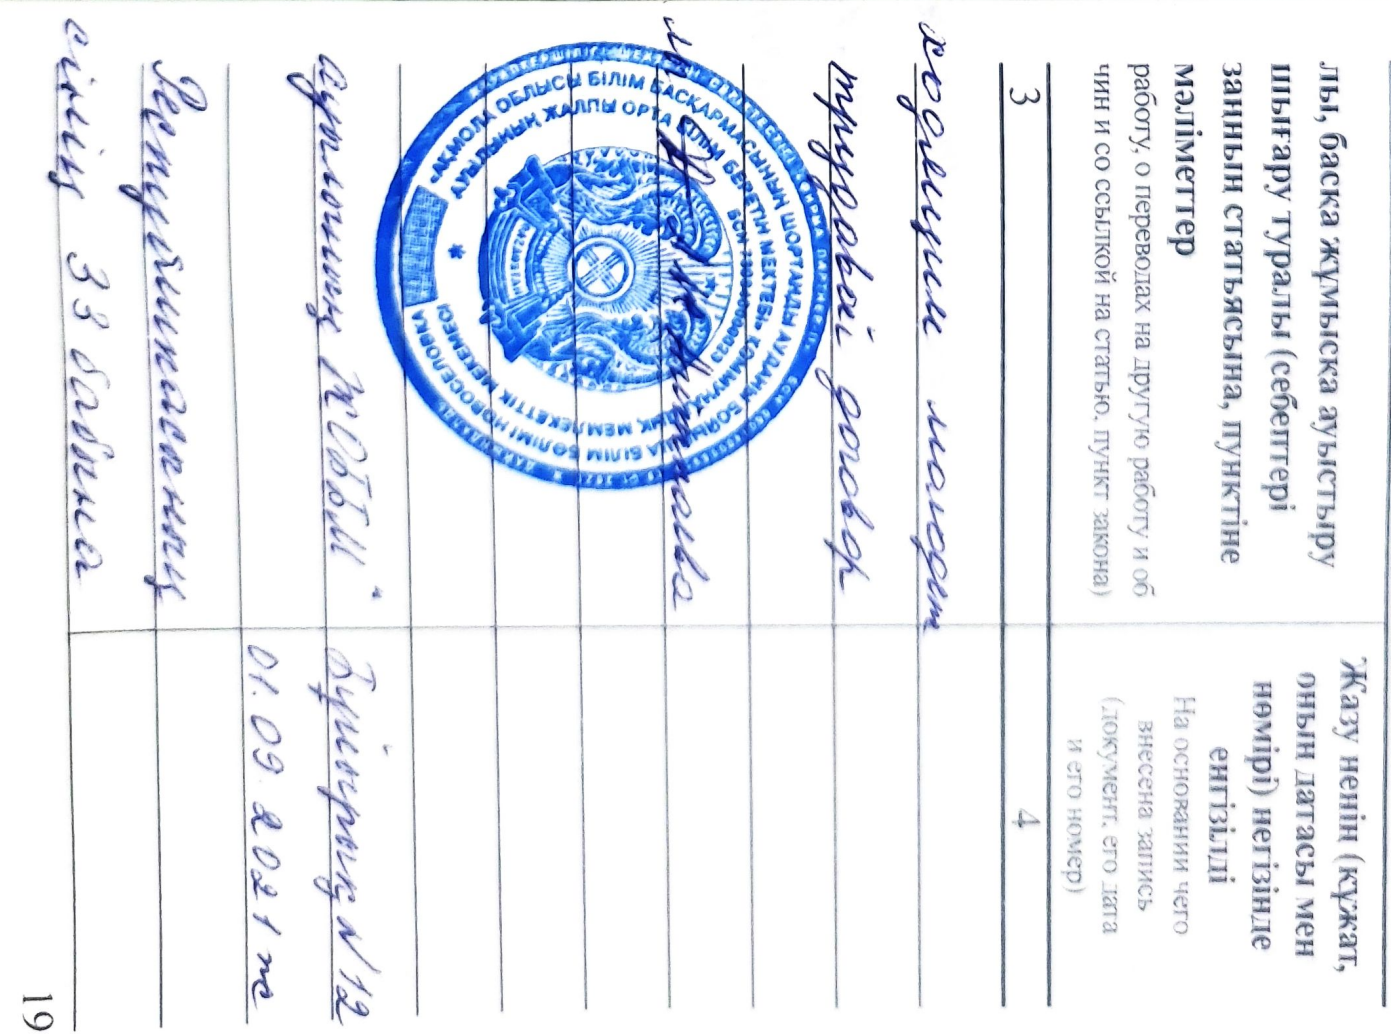 лы, басқа жұмысқа ауыстыру
шығару туралы (себептері
заңның статьясына, пунктіне
мәліметтер
работу, о переводах на другую работу и об
чин и со ссылкой на статью, пункт закона)
Жазу ненің (құжат,
оның датасы мен
нөмірі) негізінде
енгізілді
На основании чего
внесена запись
(документ, его дата
и его номер)
3 4
трудовой договор
«АҚМОЛА ОБЛЫСЫ БІЛІМ БАСҚАРМАСЫНЫҢ ШОРТАНДЫ АУДАНЫ БОЙЫНША БІЛІМ БӨЛІМІ НОВОСЕЛОВКА
АУЫЛЫНЫҢ ЖАЛПЫ ОРТА БІЛІМ БЕРЕТІН МЕКТЕБІ» КОММУНАЛДЫҚ МЕМЛЕКЕТТІК МЕКЕМЕСІ
БСН
ЖОББМ" Бұйрық N 12
01.09.2021 ж
Республикасының
33 бабына
19